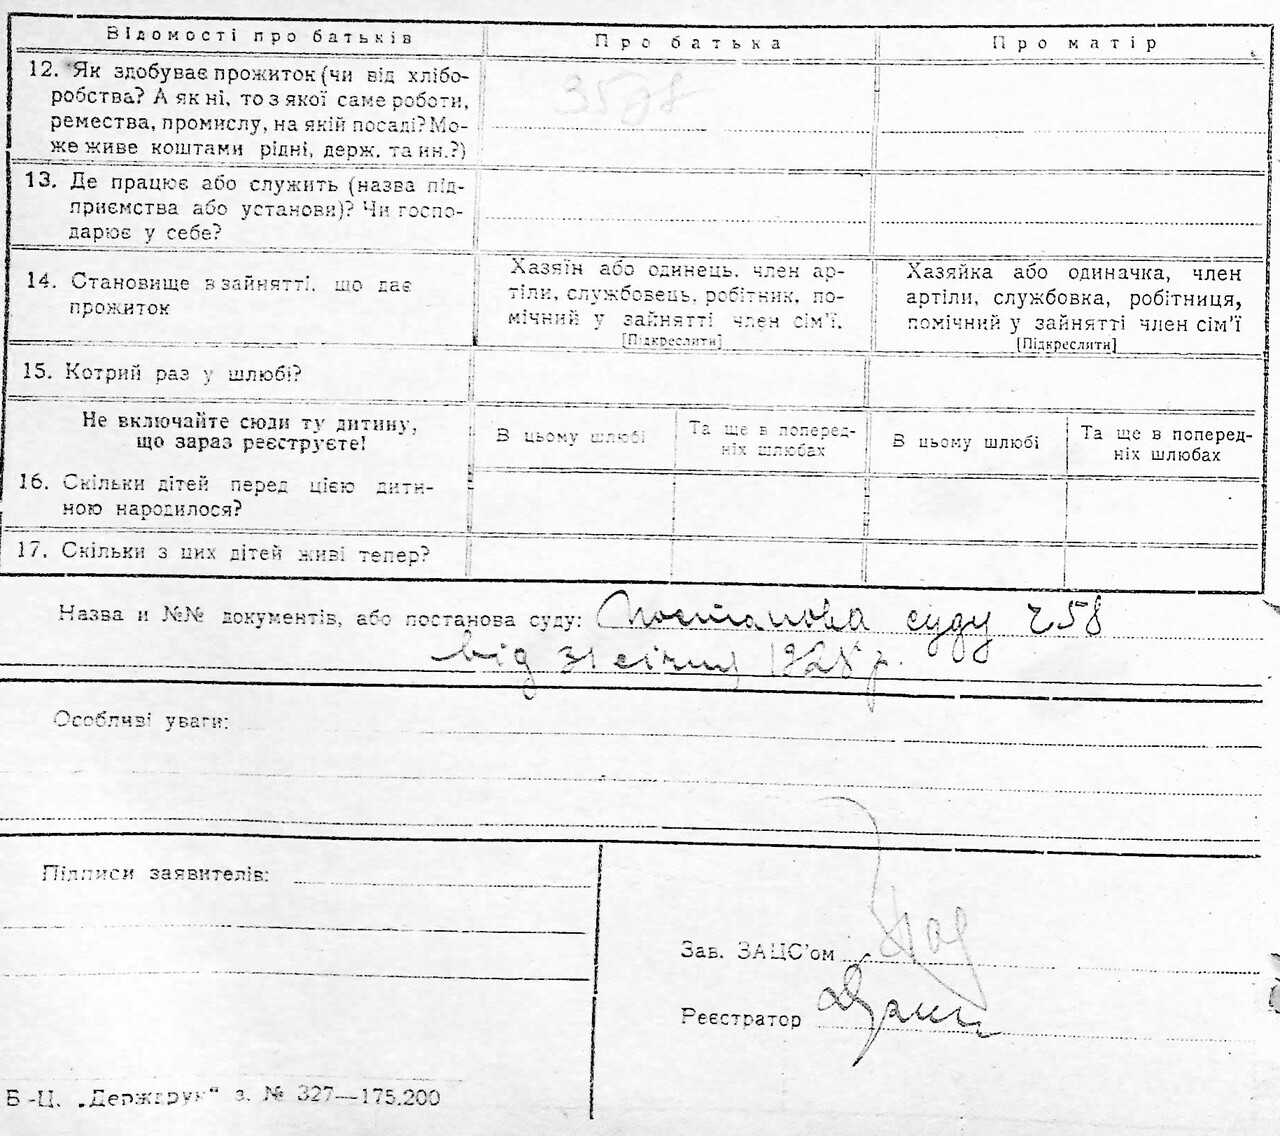 Відомості про батьків
Про батька
Про матір
12. Як здобуває прожиток (чи від хлібо-
робства? А як ні, то з якої саме роботи,
ремества, промислу, на якій посаді? Мо-
же живе коштами рідні, держ. та ин.?)
13. Де працює або служить (назва під-
приємства або установи)? Чи госпо-
дарює у себе?
14. Становище в зайнятті, що дає
прожиток
Хазяїн або одинець, член ар-
тіли, службовець, робітник, по-
мічний у зайнятті член сім'ї.
[Підкреслити]
Хазяйка або одиначка, член
артіли, службовка, робітниця,
помічний у зайнятті член сім'ї
[Підкреслити]
15. Котрий раз у шлюбі?
Не включайте сюди ту дитину,
що зараз реєструєте!
В цьому шлюбі
Та ще в поперед-
ніх шлюбах
В цьому шлюбі
Та ще в поперед-
ніх шлюбах
16. Скільки дітей перед цією дити-
ною народилося?
17. Скільки з цих дітей живі тепер?
Назва и №№ документів, або постанова суду: Постанова суду ч 58
від 31 січня 1928 р.
Особливі уваги:
Підписи заявителів:
Зав. ЗАЦС'ом
Реєстратор
Б-Ц. „Держдрук" з. № 327—175.200